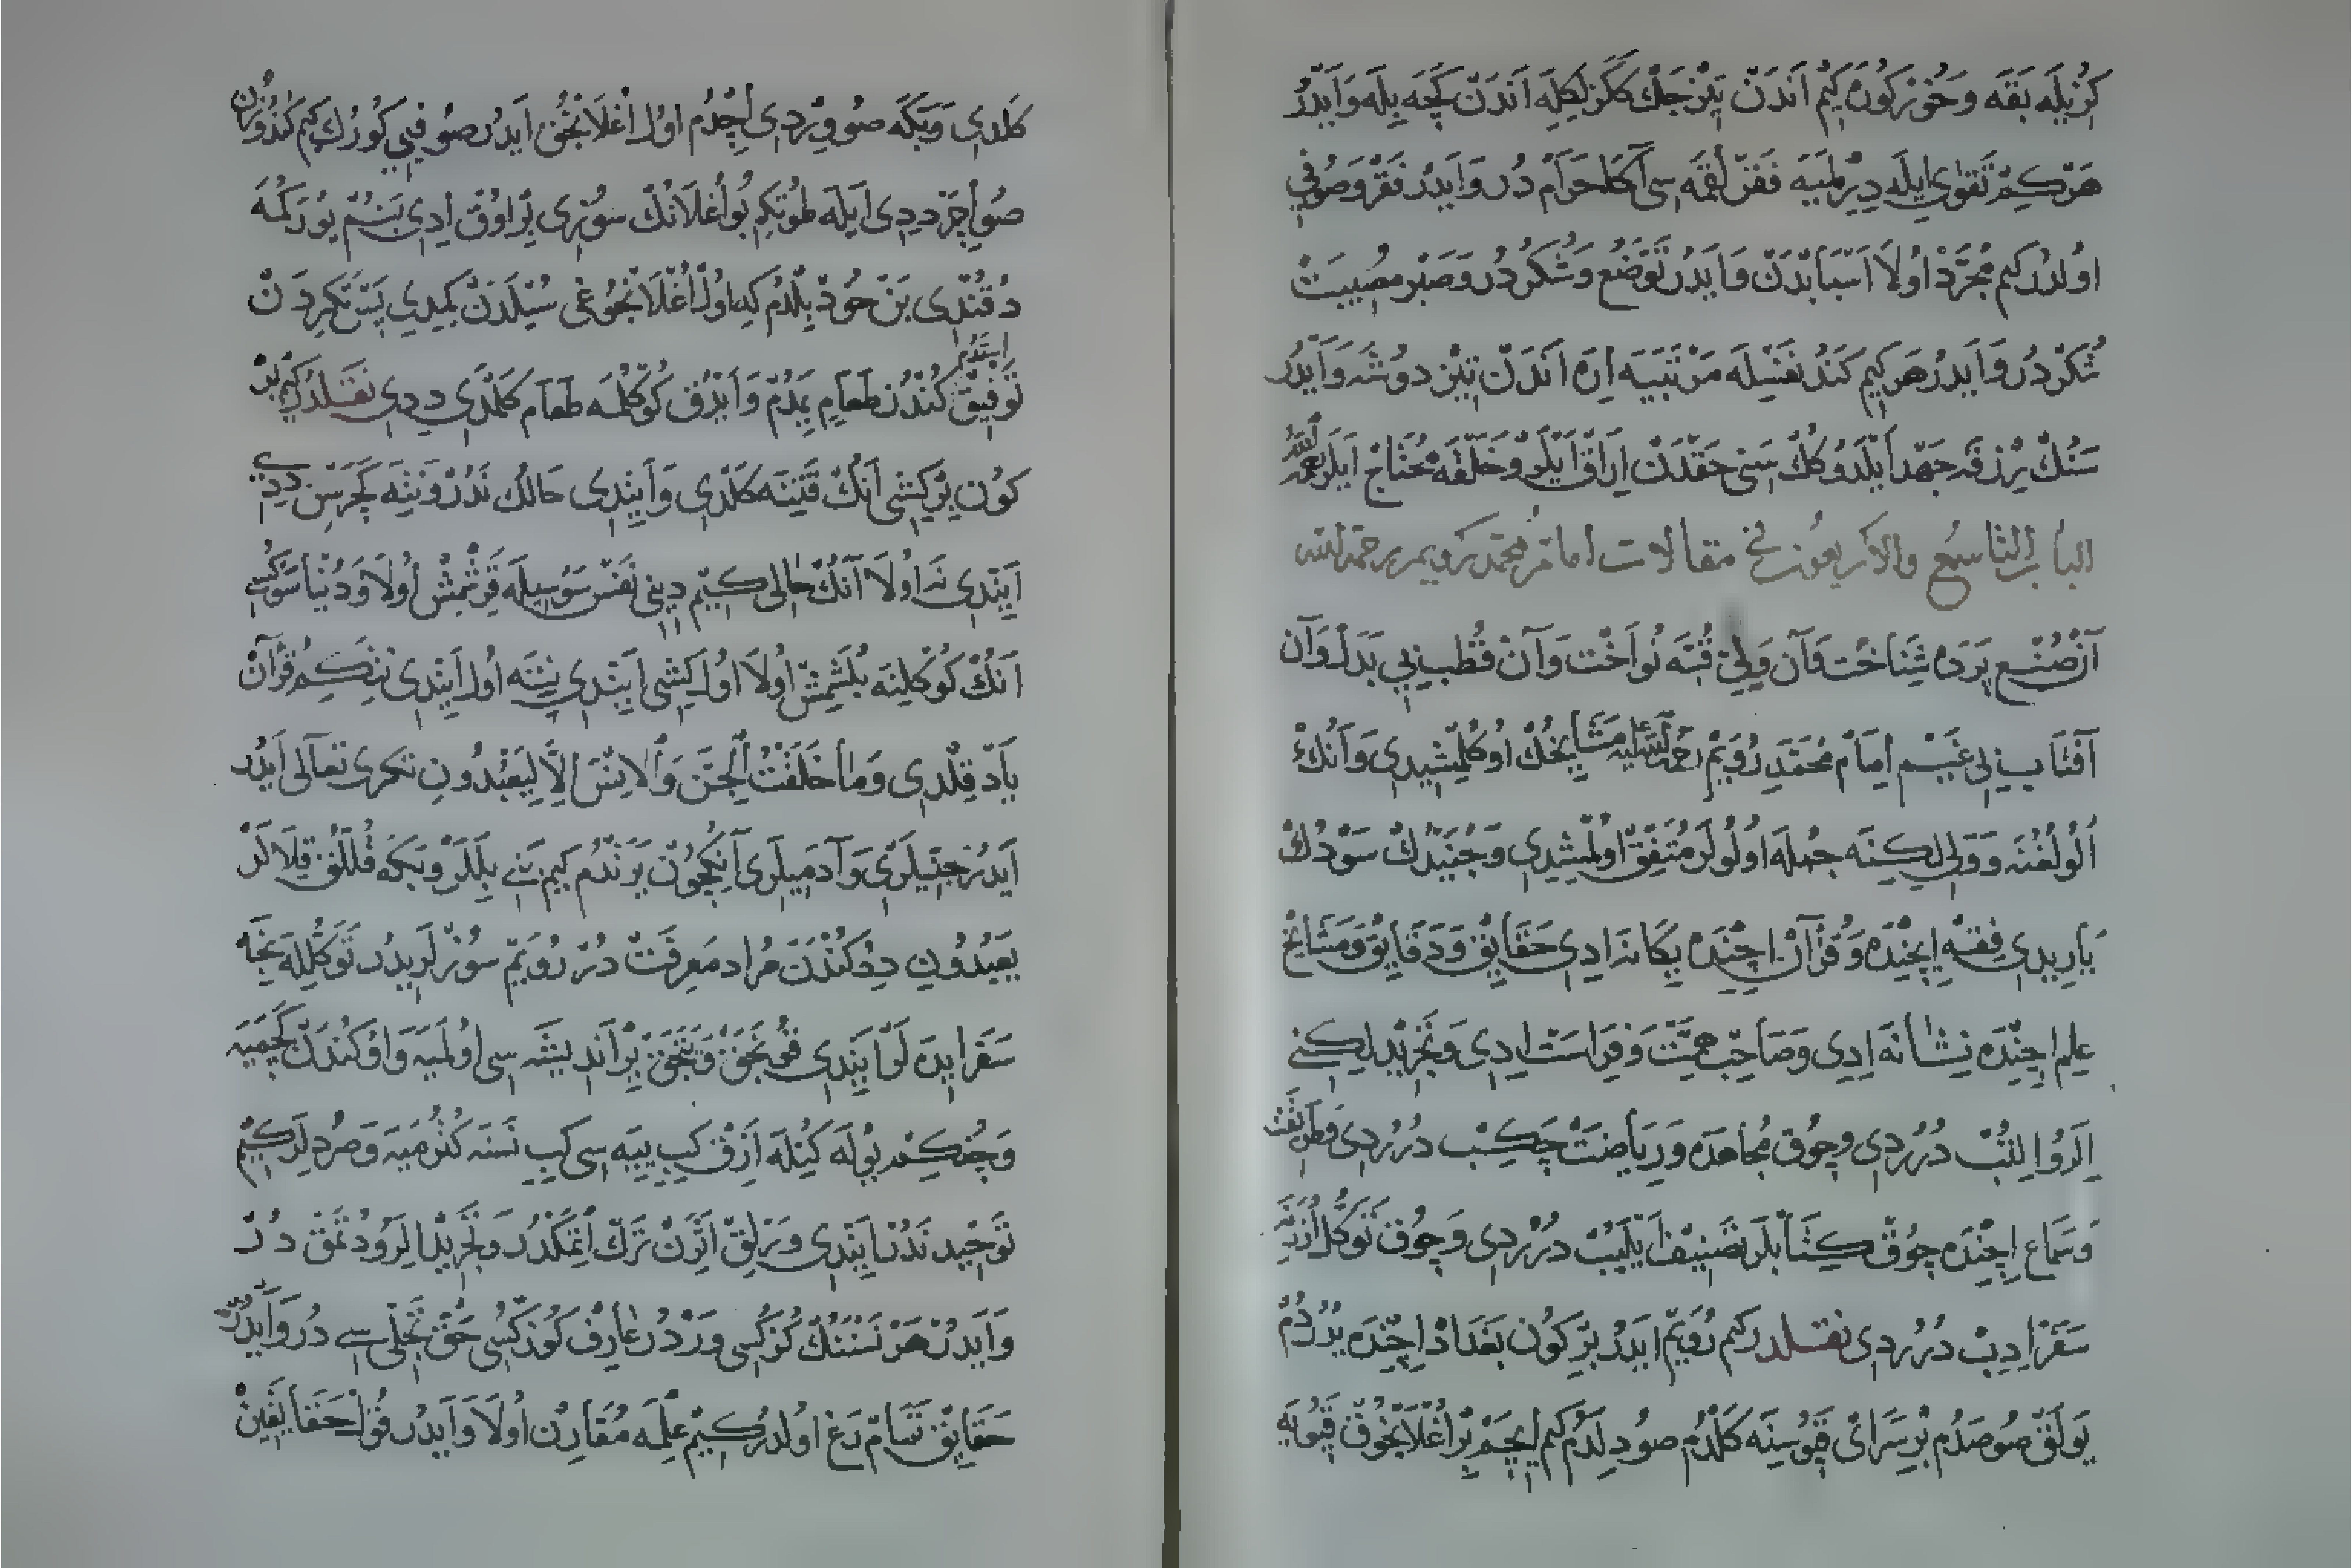 كزيله بقه وحق كوره كيم اندن يتن جك كلكز لكله اندن كجه بله وايدر
هركم تقوى ايله ديرلميه فقر لقمه سى اكا حرام در وايدر فقر وصوفى
اولدر كيم مجرد اولا اسبابدن وايدر توضع وشكر در وصبر مصيبت
شكر در وايدر هر كيم كند نفسله مرتبيه اره اندن تيز دوشه وايدر
سنك رزقه جهد ايلدوكك سنى حقدن اراق ايلر وخلقه محتاج ايلر
الباب التاسع والاربعون فى مقالات امام محمد رويم رحمة الله
آن صنع پرده شناخت وآن ولى قبه نواخت وآن قطب بى بدل وآن
آفتاب بى غيم امام محمد رويم رحمة الله عليه مشايخك اوكلمشيدى وانك
الولغنه وولى لكنه جمله اولولر متفق اولمشيدى وجنيدك سودك
ياريدى فقه ايچنده وقرآن اچنده يكانه ادى حقايق ودقايق ومشايخ
علم اچنده نشانه ادى وصاحب همت وفراست ادى وتجريد لكنى
الروا لتب درردى وچوق مجاهده ورياضت چكب درردى
وسماع اچنده چوق كتابلر تصنيف ايليب درردى وچوق توكل ازنه
سفر ادب درردى نقلدر كم رويم ايدر بر كون بغداد اچنده يردم
يولق صوصدم بر سراى قپوسنه كلدم صو دلدم كم ايچم بر اغلانجوق قپويه
كلدى وبكه صو وردى اچدم اول اغلانجق ايدر صوفيى كورك كيم كندوزن
صو اچر ددى ايله طوتكم بو اغلانك سوزى بر اوق ادى بنم يوركمه
دقندى بن خود بلدم كه اول اغلانجوغى سيلدن كمدى پس تكردن
توفيق استدم كندز طعام يمدم وازق كوكلمه طعام كلمدى ددى نقلدر كيم بر
كون بر كشى انك قتنه كلدى وايتدى حالك ندر ونيه كچرسن ددى
ايتدى نه اولا انك حالى كيم دينى نفس سوسيله قرشمش اولا ودنيا سوكسى
انك كوكلنه بلشمش اولا اول كشى ايتدى نيته اول ايتدى نتكم قرآن
ياد قلدى وما خلقت الجن والانس الا ليعبدون تكرى تعالى ايدر
ايدر جنيلرى وآدميلرى انكچون يرتدم كيم بنى بلدلر وبكه قللق قلالر
يعبدون ددكندن مراد معرفت در رويم سوزلريدر توكلله نجه
سفر ايده لو ايتدى قونجق وتجق بر انديشه سى اولميه واوكندن كچميه
وچنكم بوله كيله ازق كب ييه سى كب نسنه كترميه وصردلر كيم
توحيد ندر ايتدى ورلق اثرن ترك اتمكدر وتجريد الرودتمق در
وايدر هر نسننك كزكسى وردر عارف كوزكسى حق تجلى سى در وايدر
حقايق تمام دغ اولدر كيم علمه مقارن اولا وايدر قول حقايقين